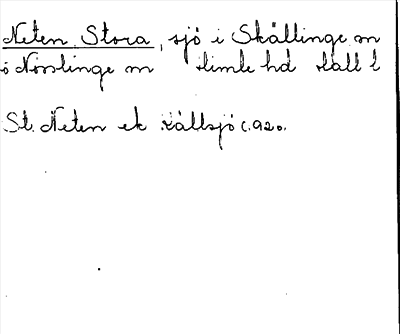 Neten Stora, sjö i Skällinge sn
o Nösslinge sn Himle hd Hall l
St. Neten ek Källsjö c. 920.